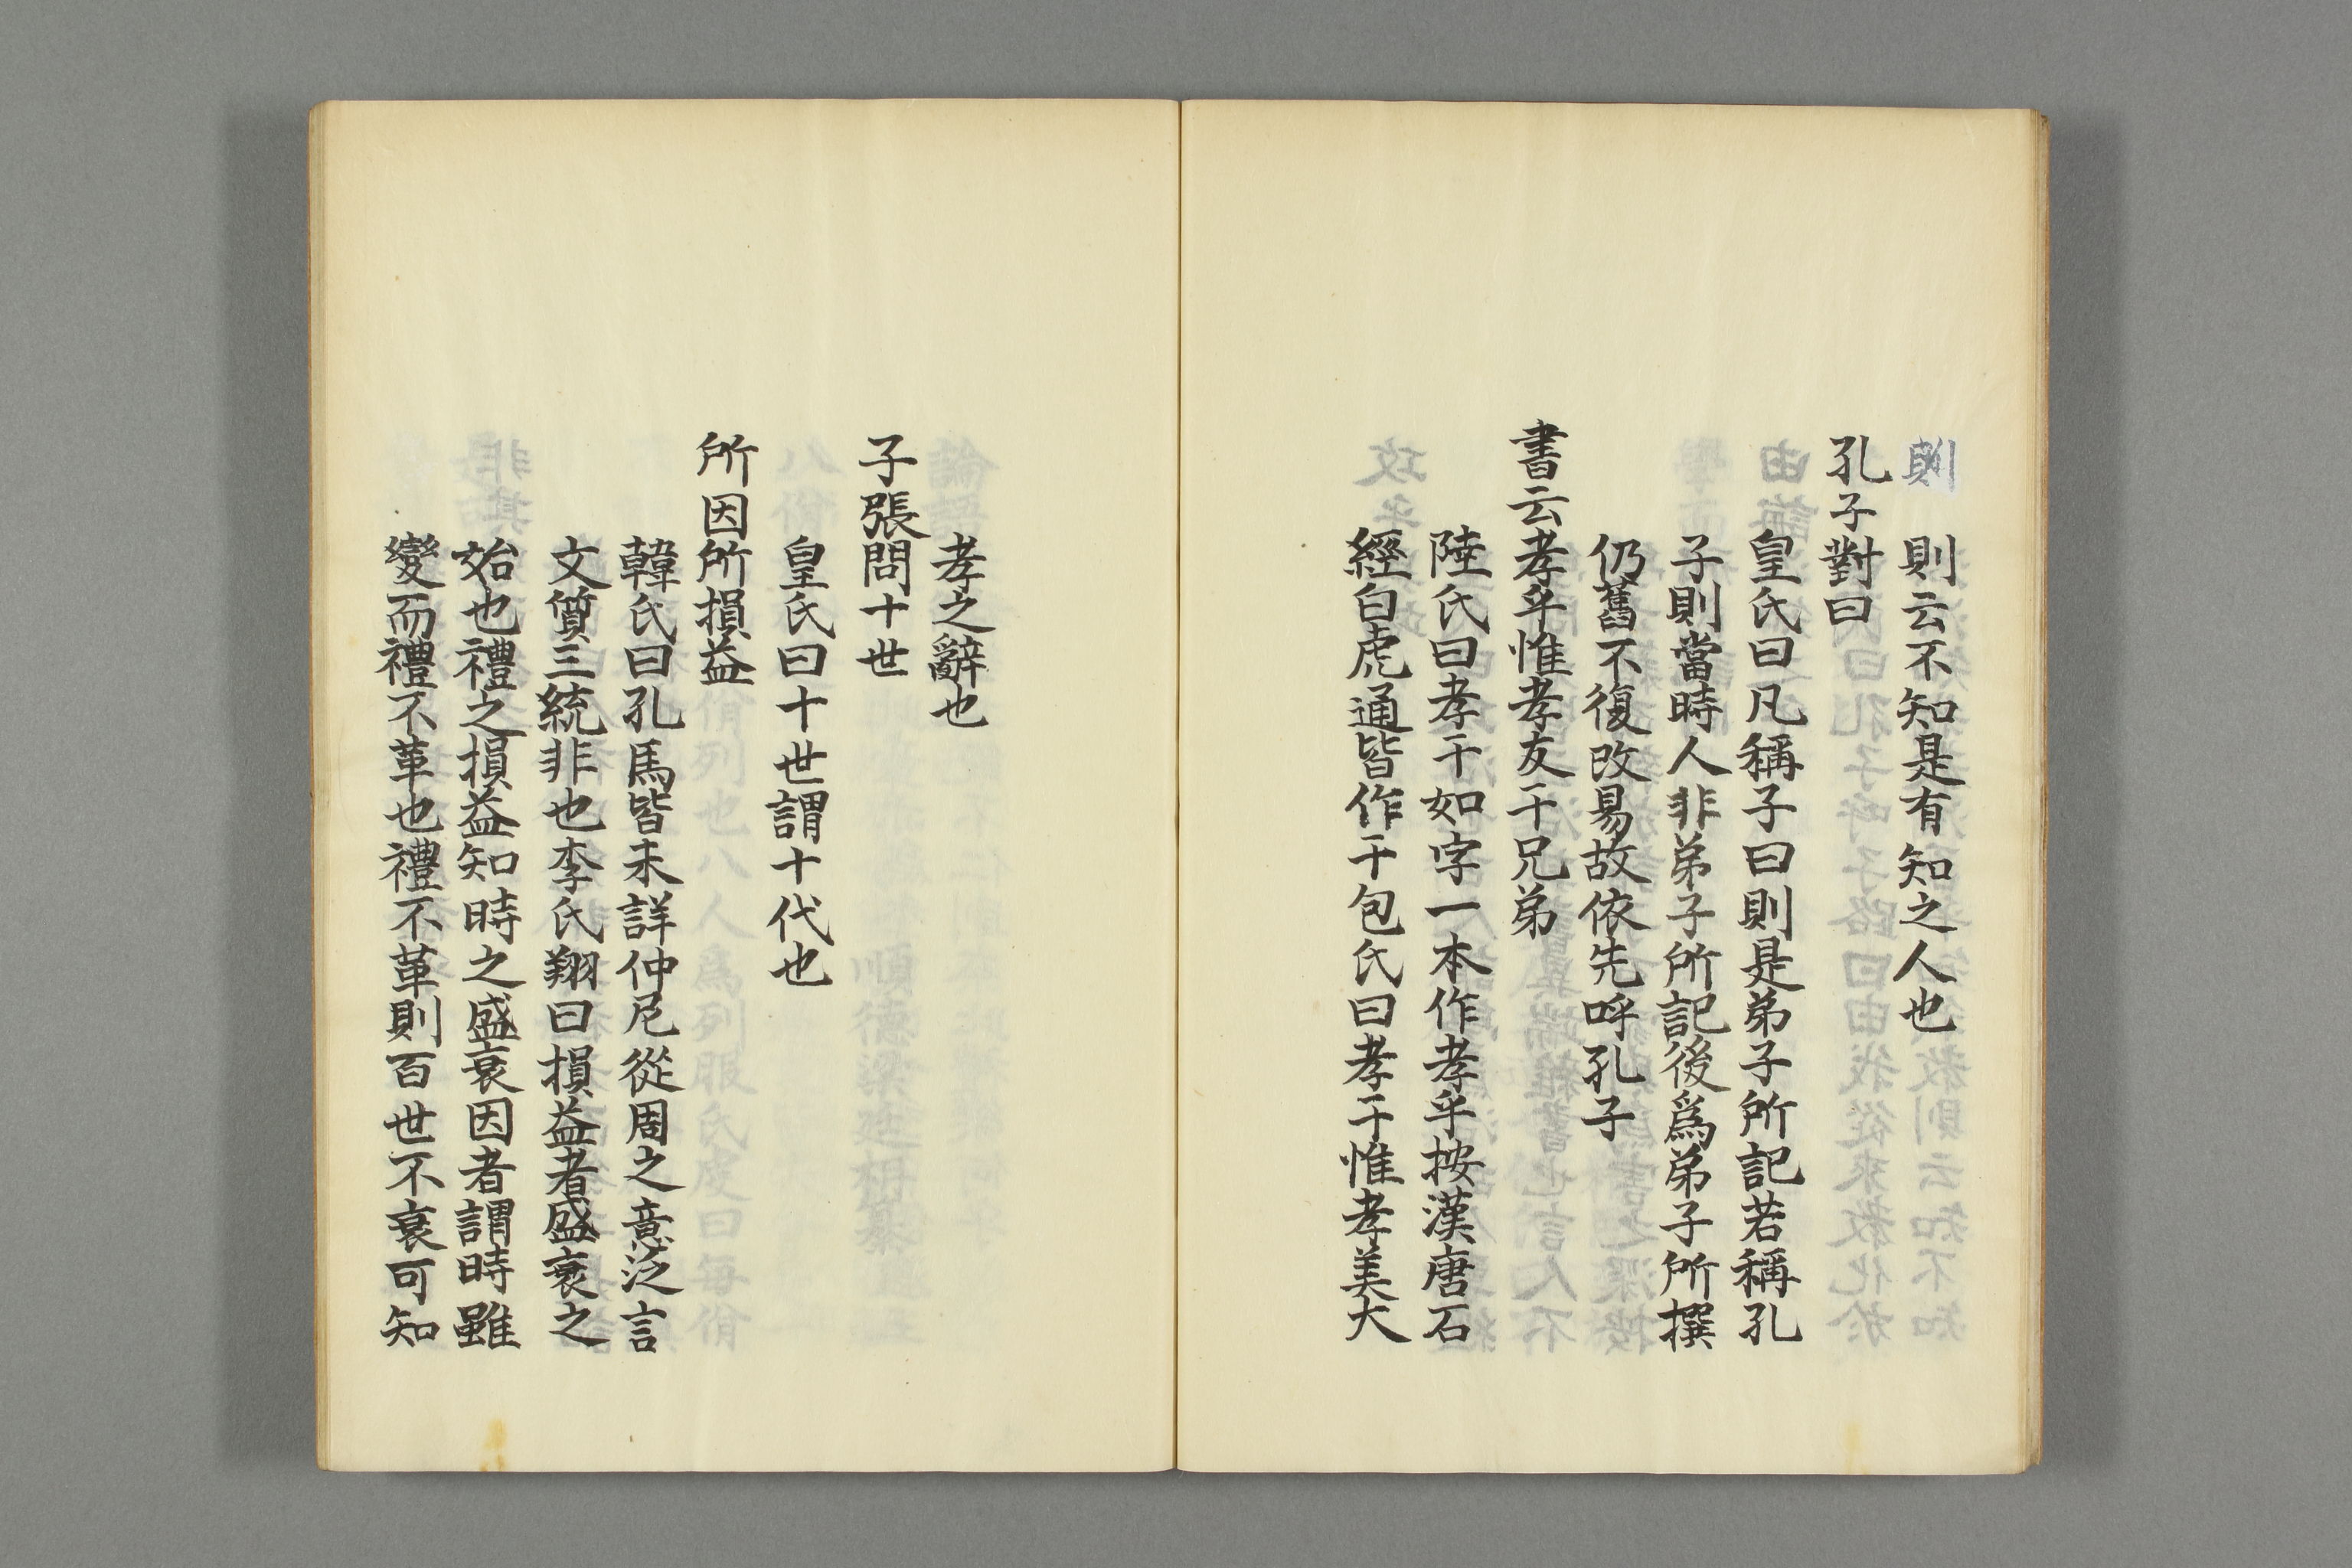 則云不知是有知之人也
孔子對曰
皇氏曰凡稱子曰則是弟子所記若稱孔
子則當時人非弟子所記後爲弟子所撰
仍舊不復改易故依先呼孔子
書云孝乎惟孝友于兄弟
陸氏曰孝于如字一本作孝乎按漢唐石
經白虎通皆作于包氏曰孝于惟孝美大
孝之辭也
子張問十世
皇氏曰十世謂十代也
所因所損益
韓氏曰孔馬皆未詳仲尼從周之意泛言
文質三統非也李氏翔曰損益者盛衰之
始也禮之損益知時之盛衰因者謂時雖
變而禮不革也禮不革則百世不衰可知